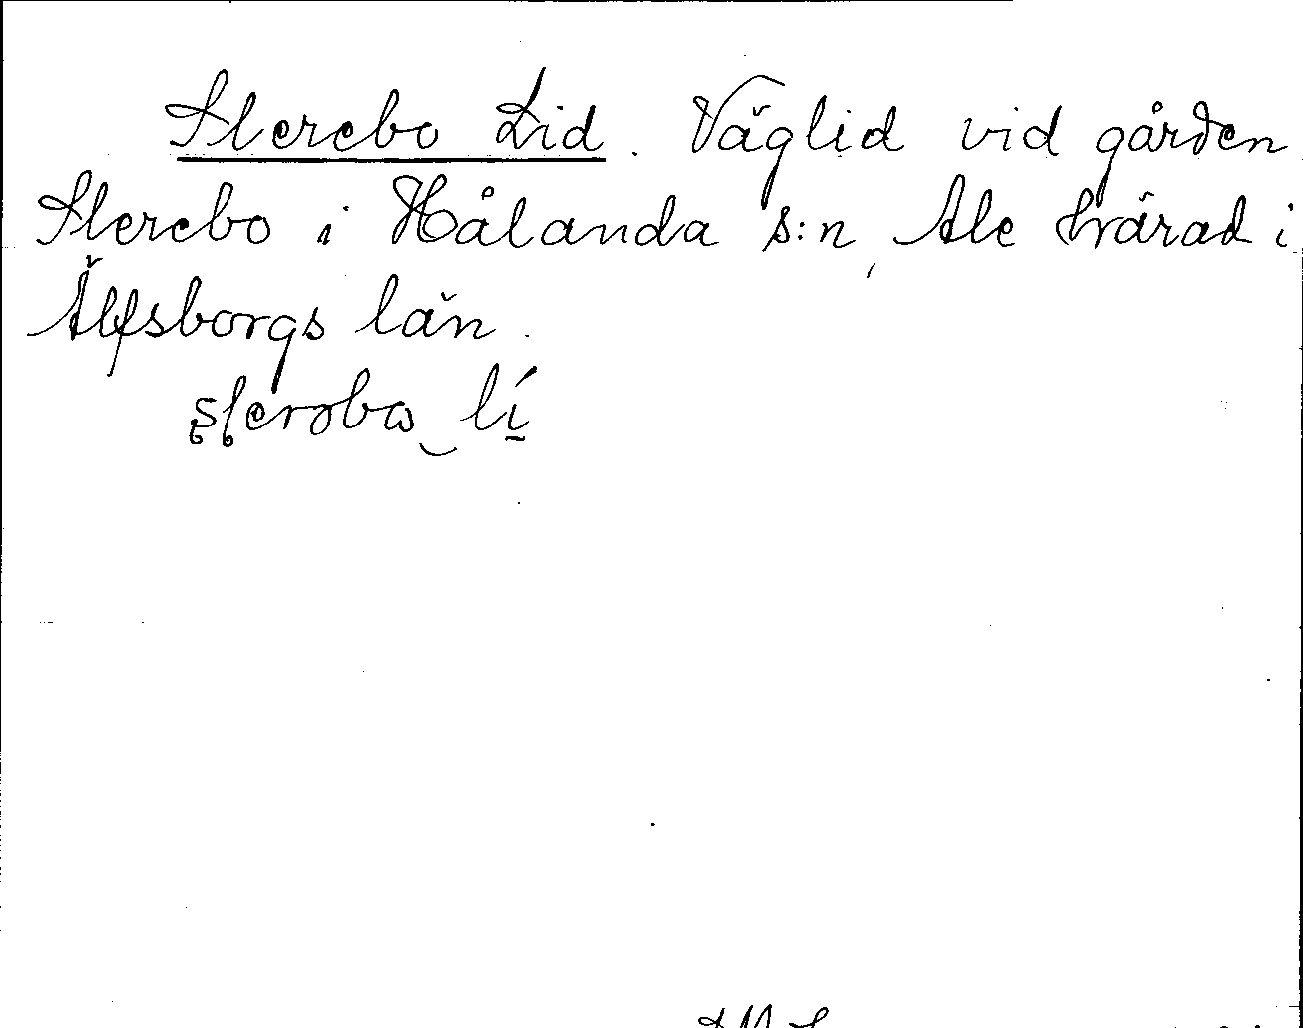 Slerebo Lid. Väglid vid gården
Slerebo i Hålanda s:n, Ale härad i
Älfsborgs län.